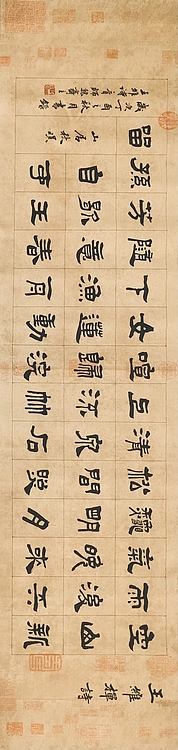 王維禪詩
空山新
雨後天
氣晚來
秋明月
松間照
清泉石
上流竹
喧歸浣
女蓮動
下漁舟
隨意春
芳歇王
孫自可
留
山居秋暝
歲次丁酉之秋月書錄